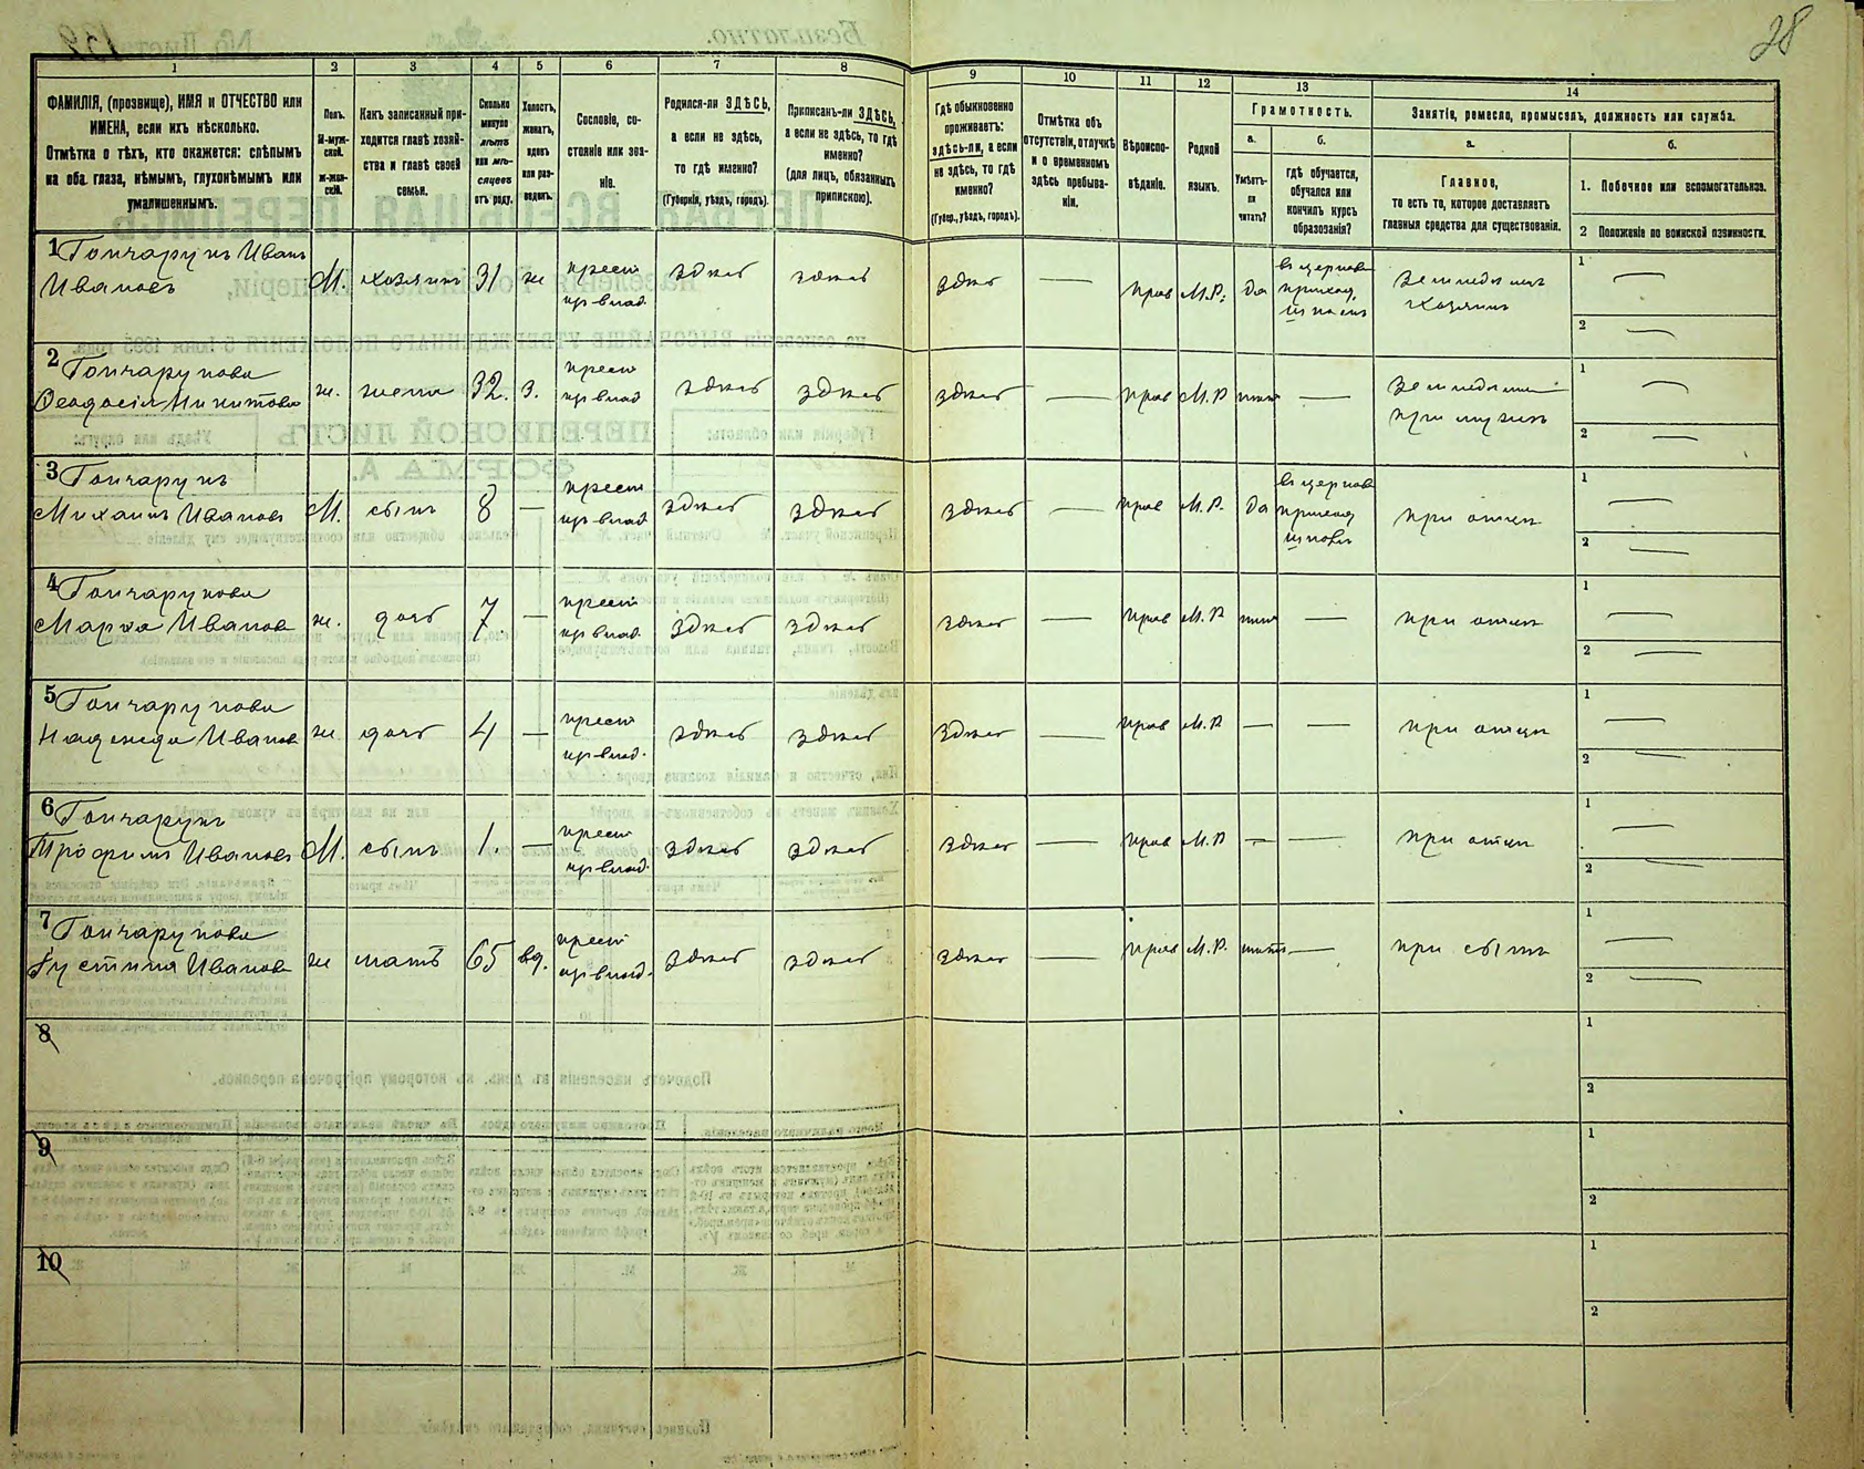 28
1 2 3 4 5 6 7 8 9 10 11 12 13 14
ФАМИЛІЯ, (прозвище), ИМЯ и ОТЧЕСТВО или
ИМЕНА, если ихъ нѣсколько.
Отмѣтка о тѣхъ, кто окажется: слѣпымъ
на оба глаза, нѣмымъ, глухонѣмымъ или
умалишеннымъ.
Полъ.
М-муж-
ской.
Ж-жен-
скій.
Какъ записанный при-
ходится главѣ хозяй-
ства и главѣ своей
семьи.
Сколько
минуло
лѣтъ
или мѣ-
сяцевъ
отъ роду.
Холостъ,
женатъ,
вдовъ
или раз-
веденъ.
Сословіе, со-
стояніе или зва-
ніе.
Родился-ли ЗДѢСЬ,
а если не здѣсь,
то гдѣ именно?
(Губернія, уѣздъ, городъ).
Приписанъ-ли ЗДѢСЬ,
а если не здѣсь, то гдѣ
именно?
(для лицъ, обязанныхъ
припискою).
Гдѣ обыкновенно
проживаетъ:
здѣсь-ли, а если
не здѣсь, то гдѣ
именно?
(Губер., уѣздъ, городъ).
Отмѣтка объ
отсутствіи, отлучкѣ
и о временномъ
здѣсь пребыва-
ніи.
Вѣроиспо-
вѣданіе.
Родной
языкъ.
Грамотность.
а.
Умѣетъ-
ли
читать?
б.
гдѣ обучается,
обучался или
кончилъ курсъ
образованія?
Занятіе, ремесло, промыселъ, должность или служба.
а.
Главное,
то есть то, которое доставляетъ
главныя средства для существованія.
б.
1. Побочное или вспомогательное.
2 Положеніе по воинской повинности.
1 Гончарунъ Иванъ
Ивановъ
М. хозяинъ 31 ж
крест
здѣсь здѣсь здѣсь — прав М.Р. да
приход
Земледѣлецъ
хозяинъ
1 —
2 —
2 Гончарунова
Ѳеодосія Никитова
ж. жена 32. з.
крест
здѣсь здѣсь здѣсь — прав М.Р —
при мужѣ
1 —
2 —
3 Гончарунъ
Михаилъ Ивановъ
М. сынъ 8 —
крест
здѣсь здѣсь здѣсь — прав М.Р. да
приход
при отцѣ
1 —
2 —
4 Гончарунова
Марѳа Иванов
ж. дочь 7. —
крест
здѣсь здѣсь здѣсь — прав М.Р —
при отцѣ
1 —
2 —
5 Гончарунова
Надежда Иванов
ж. дочь 4 —
крест
здѣсь здѣсь здѣсь — прав М.Р — —
при отцѣ
1 —
2 —
6 Гончарунъ
Трофимъ Ивановъ
М. сынъ 1. —
крест
здѣсь здѣсь здѣсь — прав М.Р — —
при отцѣ
1 —
2 —
7 Гончарунова
Густинія Иванов
ж мать 65 вд.
крест
здѣсь здѣсь здѣсь — прав М.Р. —
при сынѣ
1 —
2 —
8
1
2
9
1
2
10
1
2